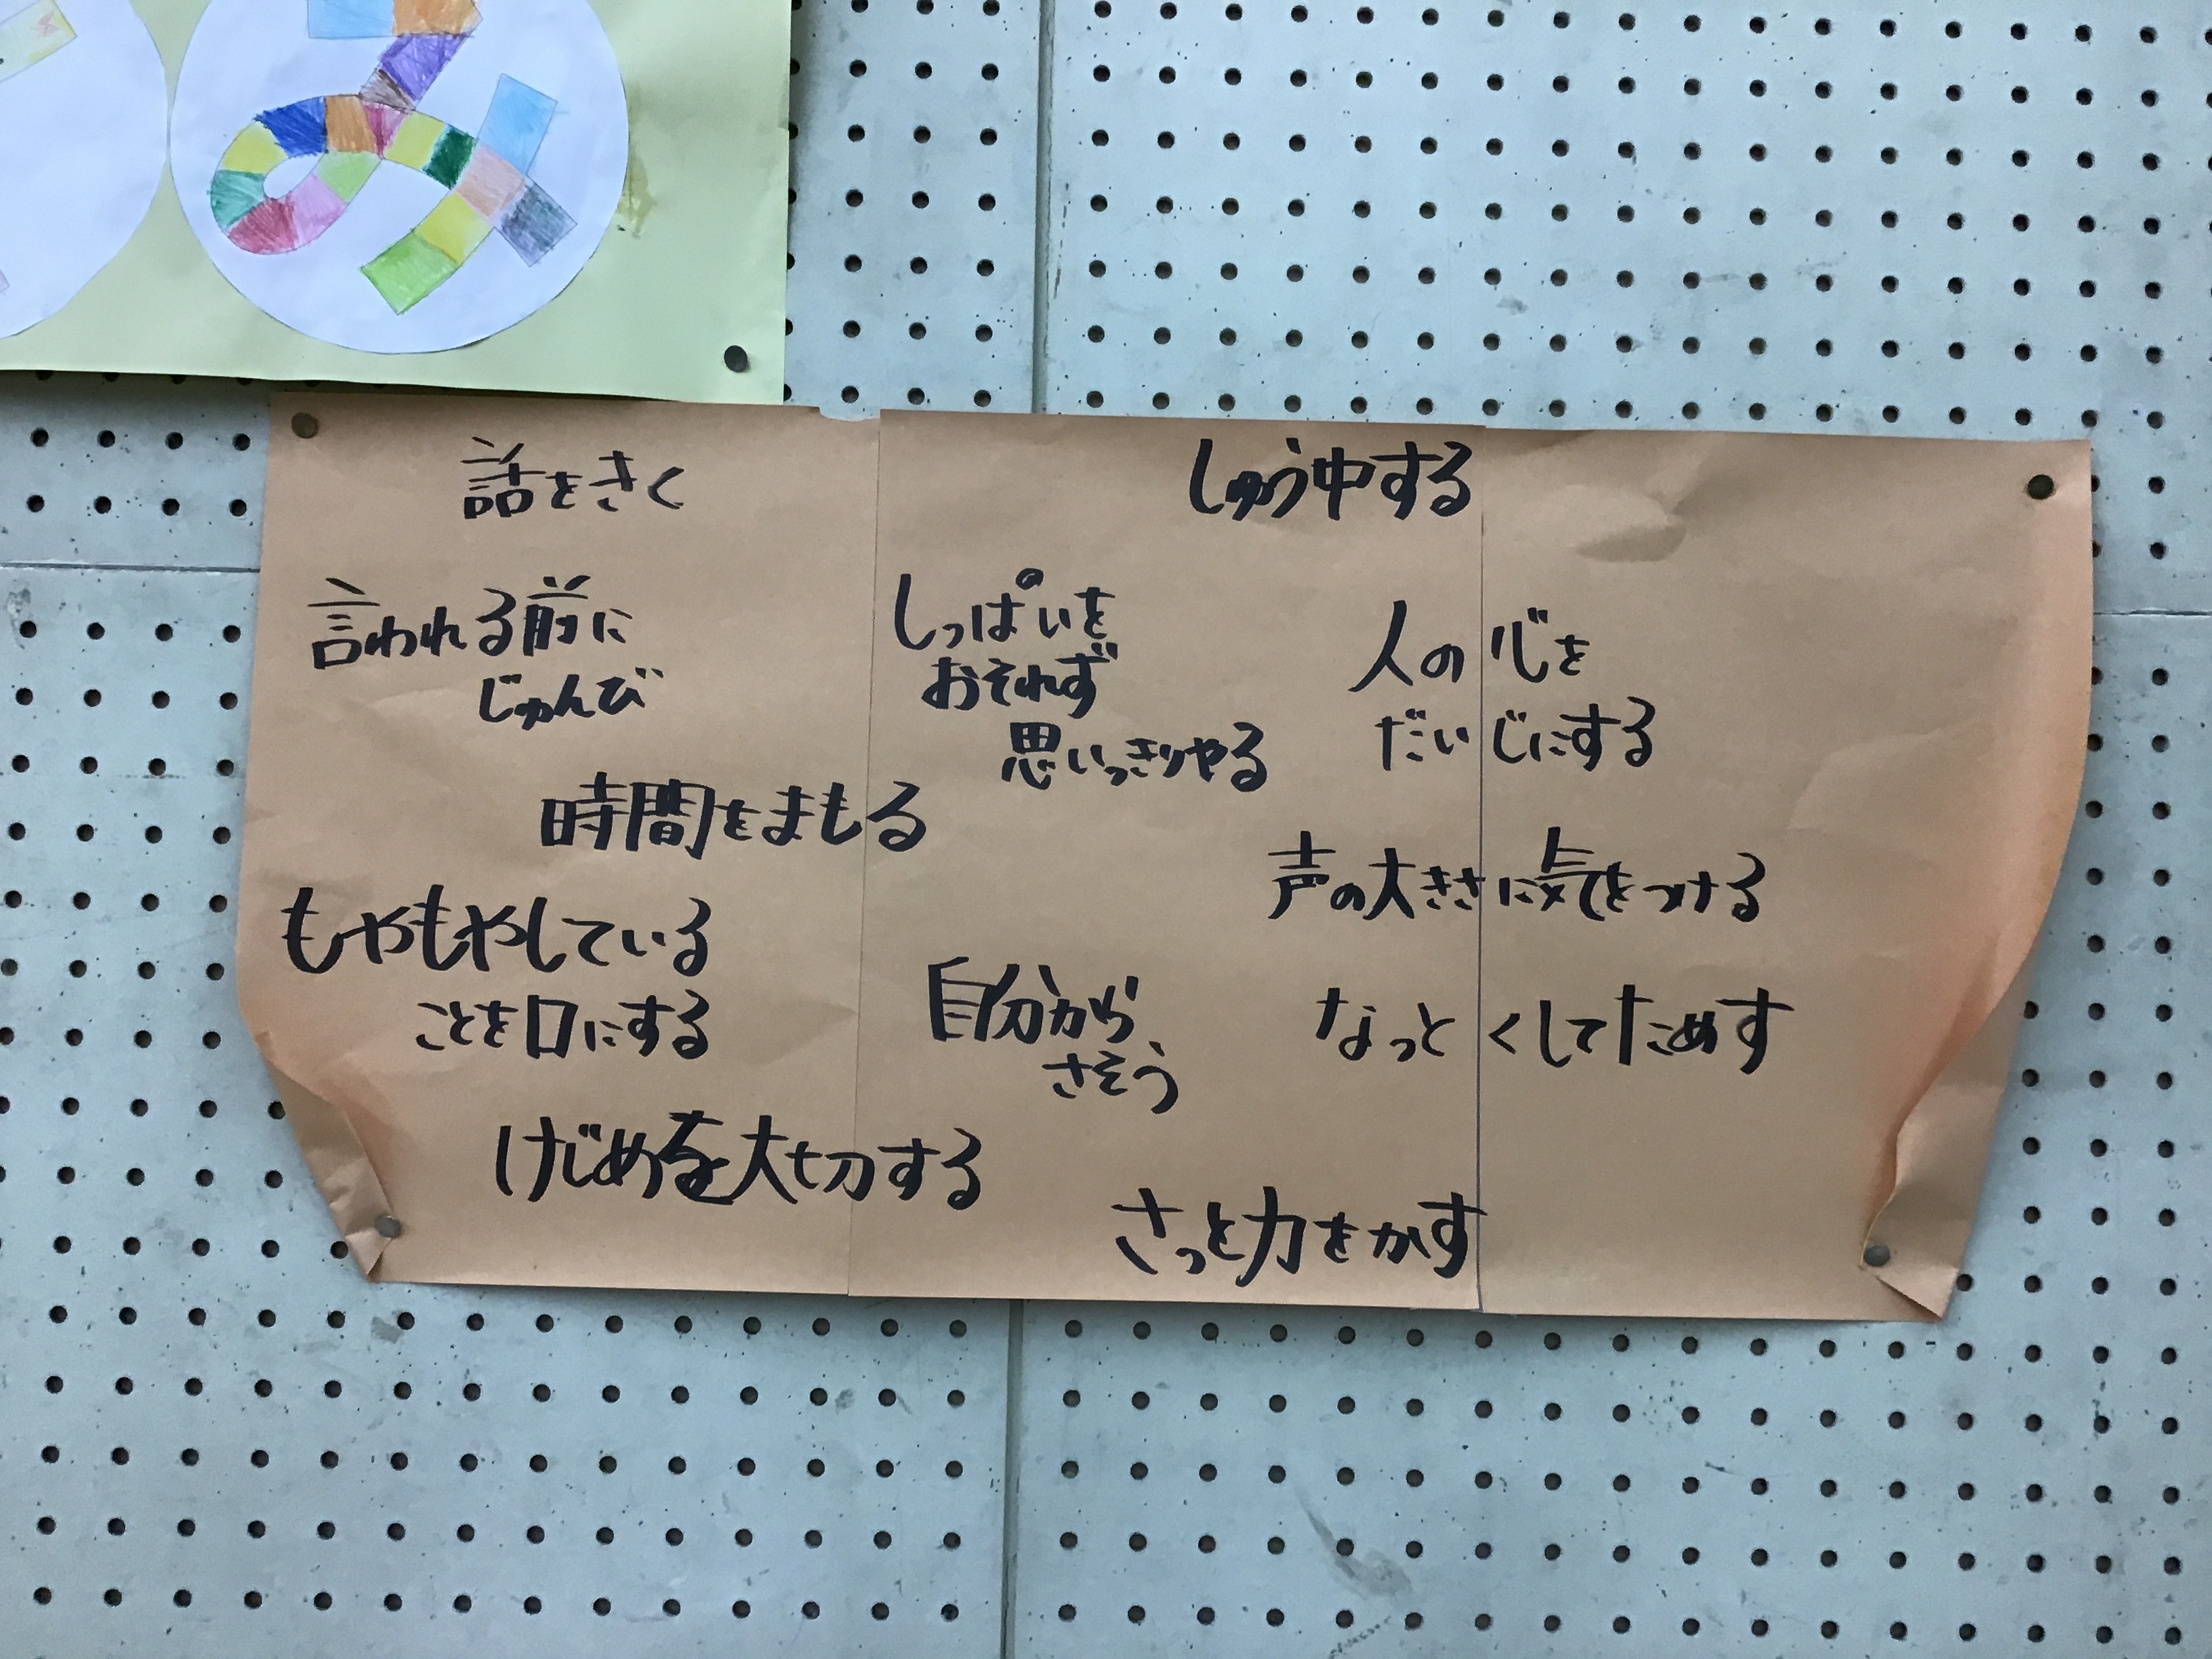 み
話をきく
しゅう中する
言われる前に
じゅんび
しっぱいを
おそれず
思いっきりやる
人の心を
だいじにする
時間をまもる
声の大きさに気をつける
もやもやしている
ことを口にする
自分から
さそう
なっとくしてためす
けじめを大切する
さっと力をかす